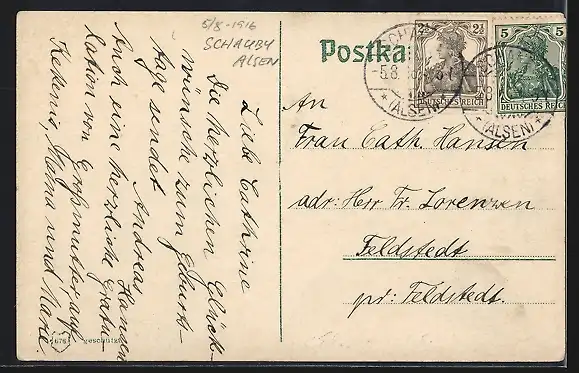 5/8-1916
SCHAUBY
ALSEN
Postka
2½ 2½
DEUTSCHES REICH
5 5
DEUTSCHES REICH
-5.8.
* (ALSEN) *
* (ALSEN) *
Liebe Cathrine
Die herzlichen Glück-
wünsche zum Geburts-
tage sendet
Andreas Hansen
Auch eine herzliche Gratu-
lation von Großmutter auf
Kekenis, Mama und Marie.
An
Frau Cath. Hansen
adr: Herr Fr. Lorenzen
Feldstedt
pr: Feldstedt.
geschützt